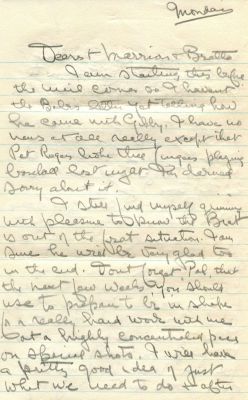 Monday
Dearest Marrion & Bratto
I am starting this before
the mail comes so I havent
the Babes letter yet telling how
he came with Gibby. I have no
news at all really except that
Pat Rogers broke three fingers playing
baseball last night. I'm darned
sorry about it.
I still find myself grinning
with pleasure to know the Brat
is out of the post situation. I am
sure he will be very glad too
in the end. Dont forget Pal that
the next few weeks you should
use to prepare to be in shape
for a really hard work with me
at a highly concentrated pace
on special shots. I will have
a pretty good idea of just
what we need to do & after